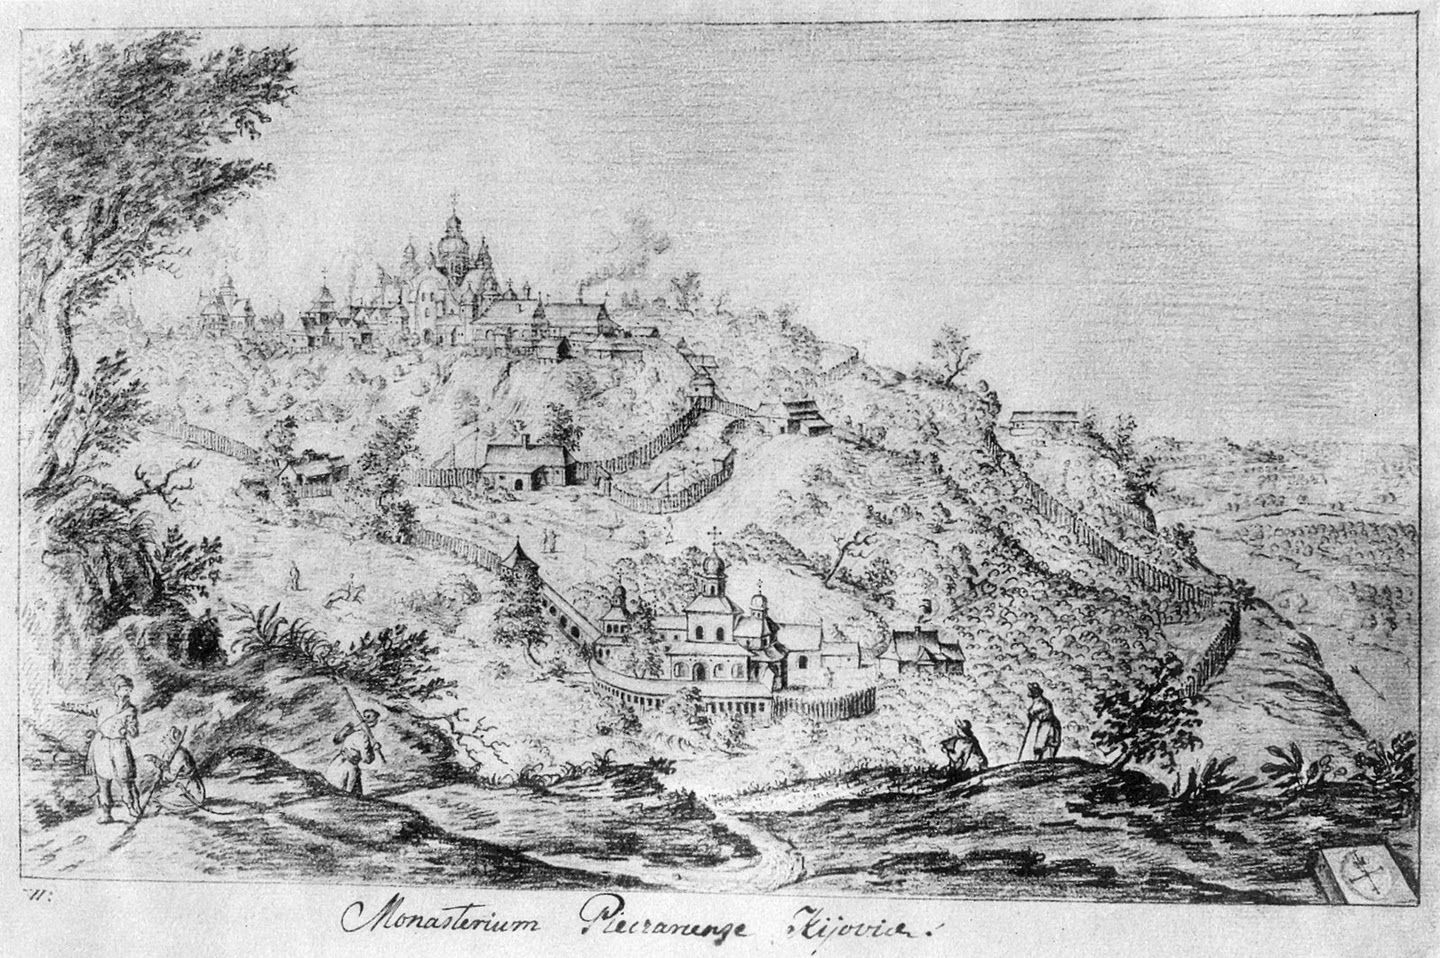 11:
Monasterium Pieczarense Kijoviæ.